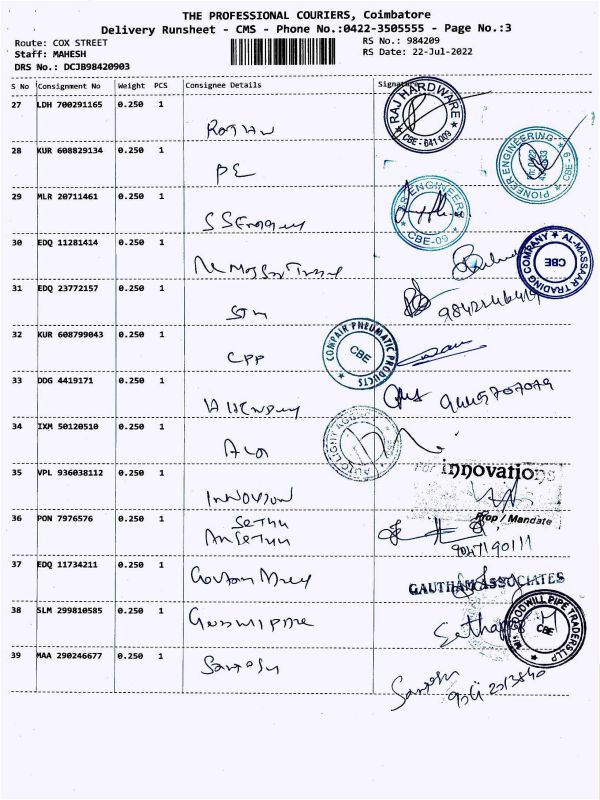 THE PROFESSIONAL COURIERS, Coimbatore
Delivery Runsheet - CMS - Phone No.:0422-3505555 - Page No.:3
Route: COX STREET
RS No.: 984209
Staff: MAHESH
RS Date: 22-Jul-2022
DRS No.: DCJB98420903
S No Consignment No Weight PCS Consignee Details Signature
27 LDH 700291165 0.250 1
RAJ HARDWARE
CBE - 641 009
28 KUR 608829134 0.250 1
PE
PIONEER ENGINEERING
CBE - 9
29 MLR 20711461 0.250 1
SS Engg
SS ENGINEERS
CBE-09
30 EDQ 11281414 0.250 1
AL-MASSAR TRADING COMPANY
CBE
31 EDQ 23772157 0.250 1
32 KUR 608799043 0.250 1
CPP
COMPAIR PNEUMATIC PRODUCTS
CBE
33 DDG 4419171 0.250 1
34 IXM 50120510 0.250 1
AUTO LIGHT
35 VPL 936038112 0.250 1
For innovations
Prop / Mandate
36 PON 7976576 0.250 1
Sethu
9047190111
37 EDQ 11734211 0.250 1
GAUTHAM ASSOCIATES
38 SLM 299810585 0.250 1
M/s. GOODWILL PIPE TRADERS LLP
CBE
39 MAA 290246677 0.250 1
Santosh
Santosh